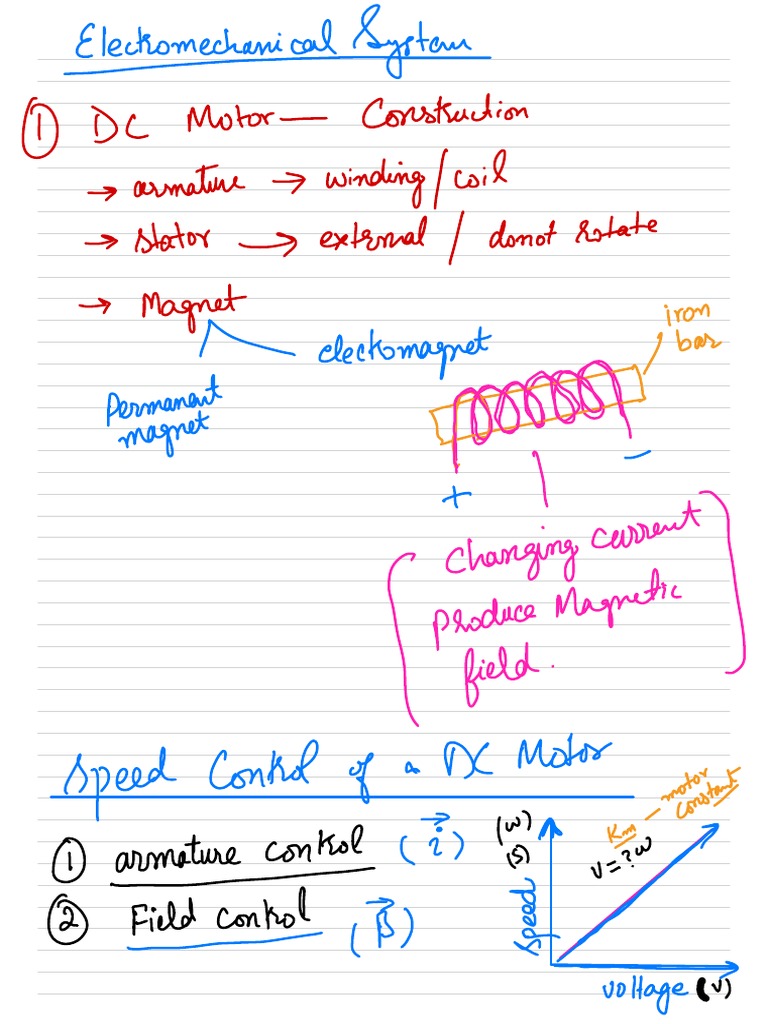 Electromechanical System
① DC Motor — Construction
→ armature → winding/coil
→ stator → external / donot rotate
→ Magnet
iron
bar
electomagnet
Permanant
magnet
+ −
(Changing current
produce Magnetic
field.)
Speed Control of a DC Motor
① armature control (i)
② Field control (β)
Km — motor
constant
(w)
(S)
V = ? w
Speed
voltage (v)